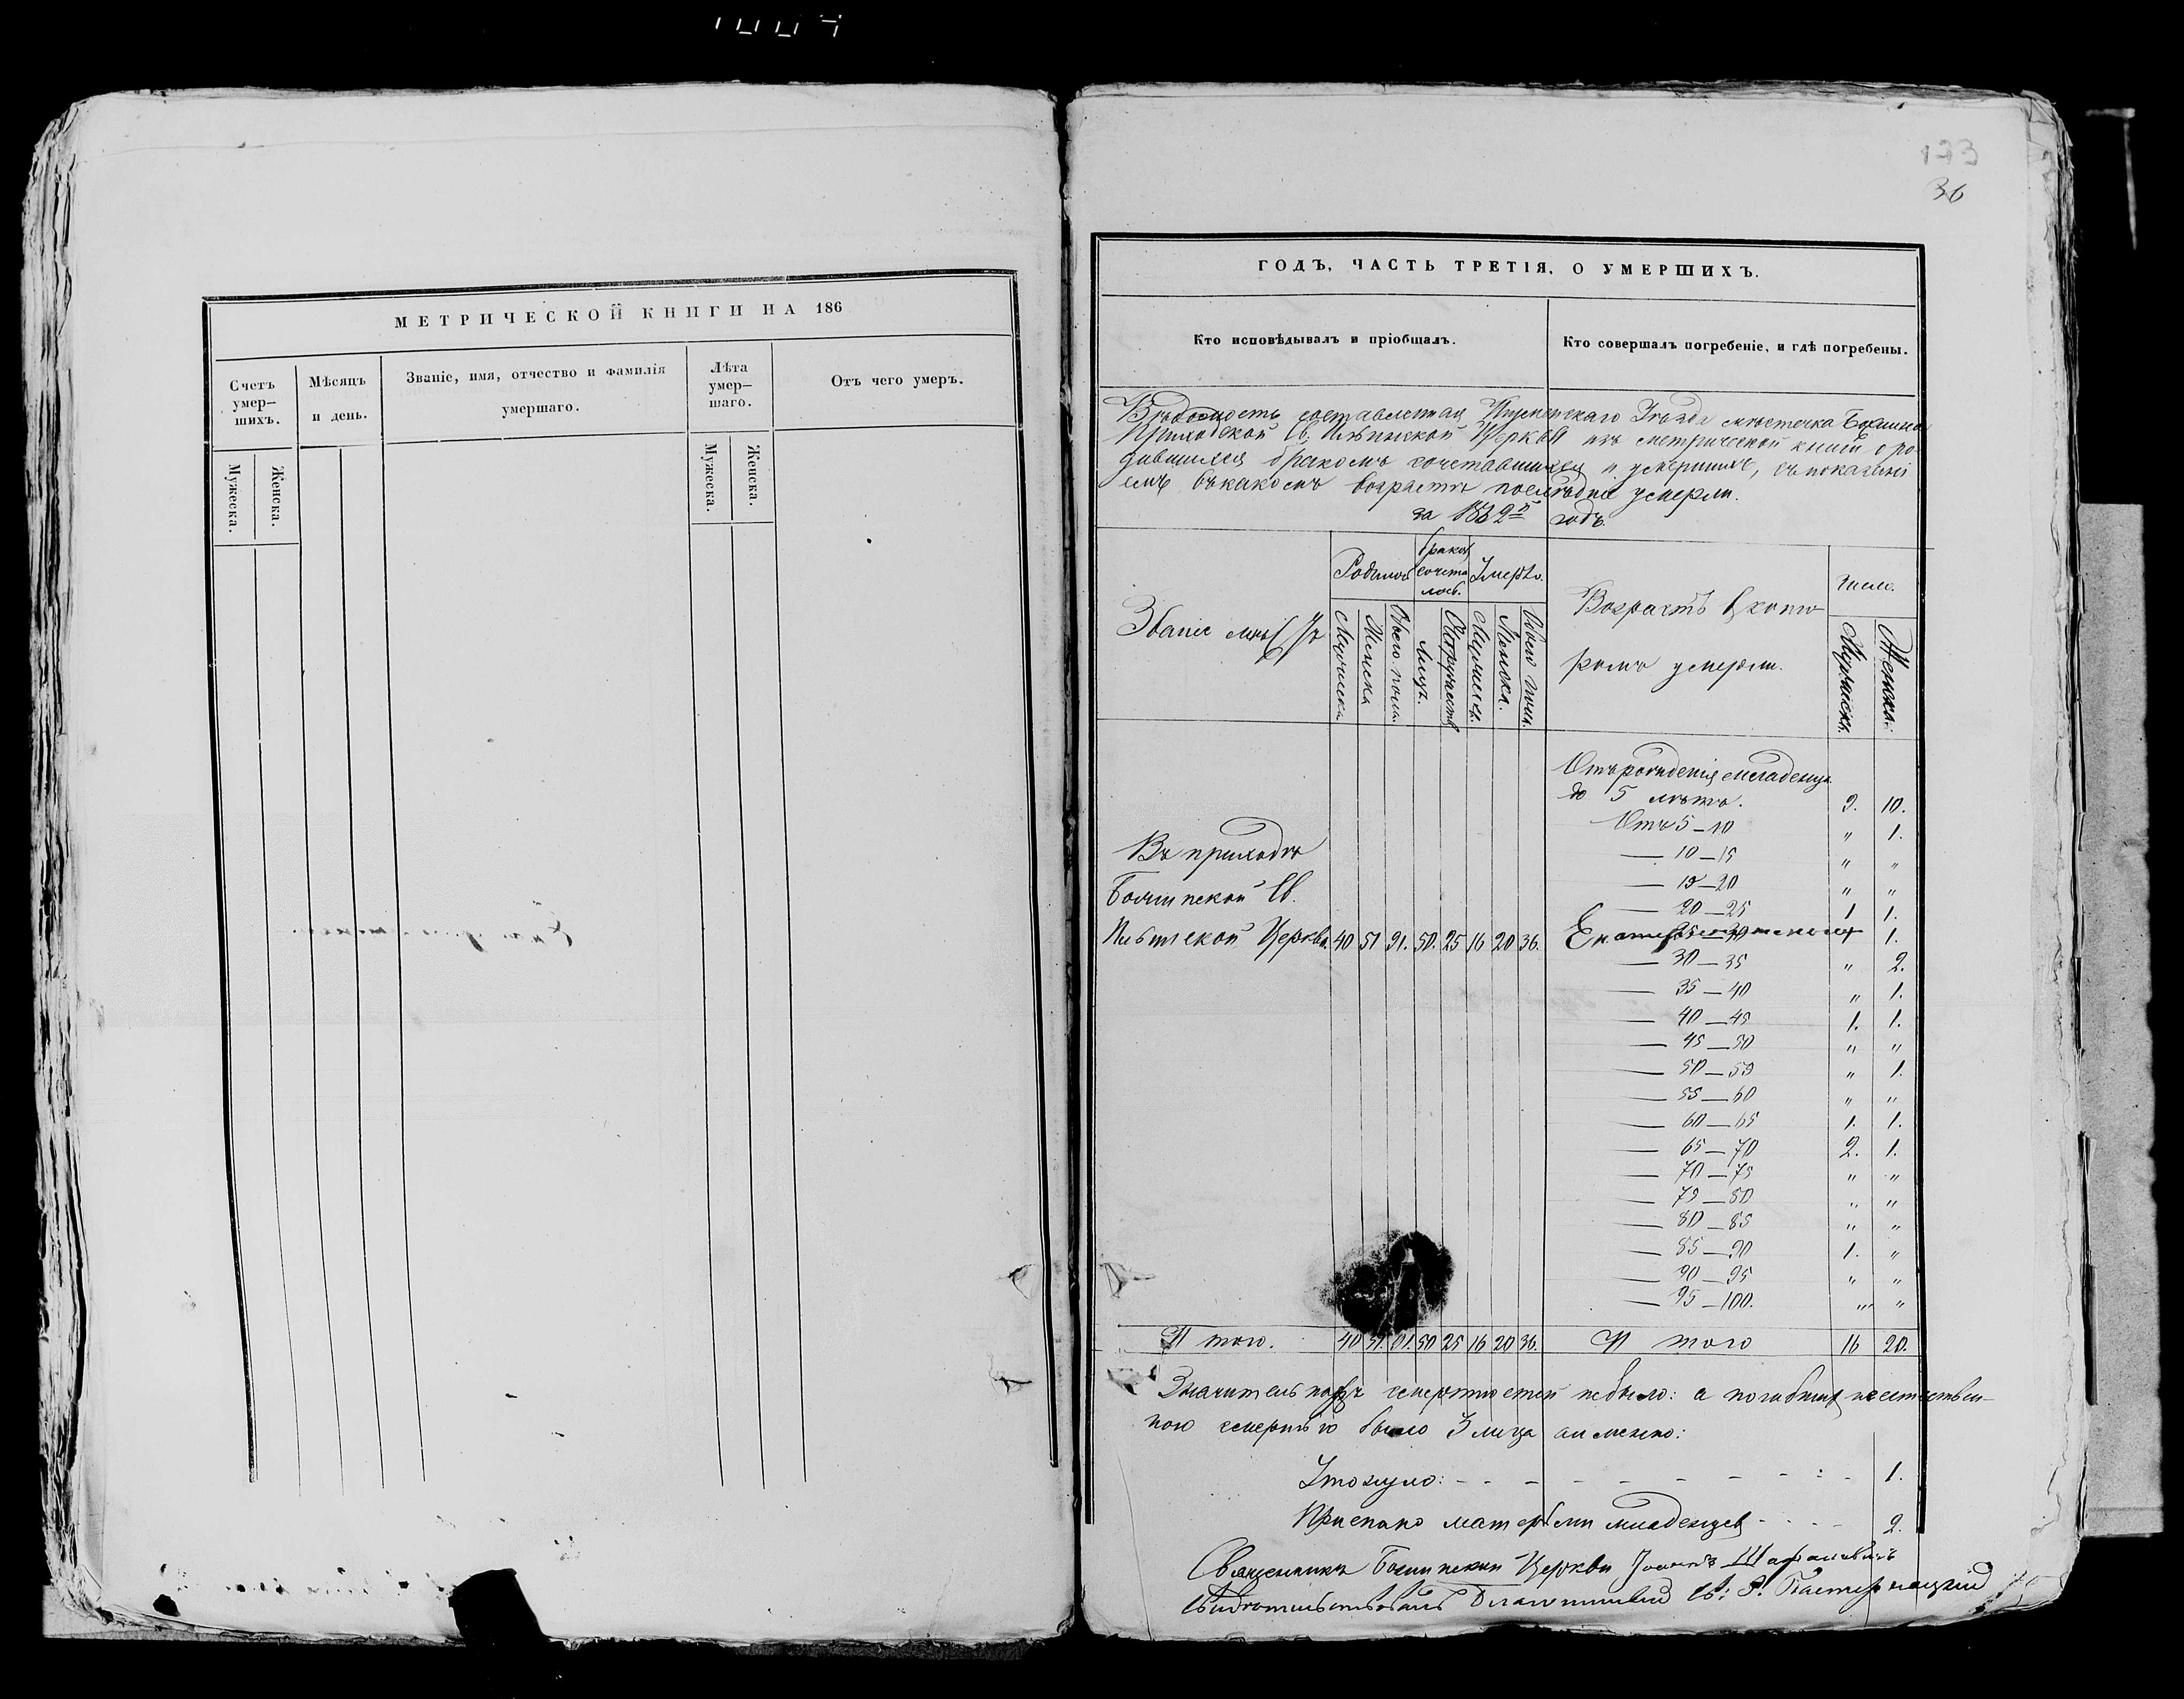 173
36
МЕТРИЧЕСКОЙ КНИГИ НА 186
Счетъ умер-шихъ.
Мужеска.
Женска.
Мѣсяцъ и день.
Званіе, имя, отчество и фамилія умершаго.
Лѣта умер-шаго.
Мужеска.
Женска.
Отъ чего умеръ.
ГОДЪ, ЧАСТЬ ТРЕТІЯ, О УМЕРШИХЪ.
Кто исповѣдывалъ и пріобщалъ.
Кто совершалъ погребеніе, и гдѣ погребены.
Вѣдомость составленная Уѣзда мѣстечка
Приходской Св. Ильинской Церкви изъ метрической книги о ро-
дившихся бракомъ сочетавшихся и умершихъ, съ показані
емъ въ какомъ возрастѣ послѣдніе умерли.
за годъ.
Званіе мѣстъ
Родилось
Мужеска
Женска
Обоего пола.
Бракомъ сочета лось.
Лицъ.
Супружествъ
Умерло.
Мужеска.
Женска.
Обоего пола.
Возрастъ въ кото
ромъ умерли.
Число.
Мужеска.
Женска.
Отъ рожденія младенца
до 5 лѣтъ. 9. 10.
Отъ 5—10 " 1.
— 10—15 " "
— 15—20 " "
— 20—25 1 1.
— 25—30 1 1.
— 30—35 " 2.
— 35—40 " 1.
— 40—45 1. 1.
— 45—50 " "
— 50—55 " 1.
— 55—60 " "
— 60—65 1. 1.
— 65—70 2. 1.
— 70—75 " "
— 75—80 " "
— 80—85 " "
— 85—90 1. "
— 90—95 " "
— 95—100. " "
Въ приходѣ
Св.
Ильинской Церкви 40 51 91. 50. 25 16 20 36.
И того. 40 51. 91. 50 25 16 20 36. И того 16 20.
Значительныхъ смертностей небыло: а погибшихъ неестествен-
ною смертію было 3 лица а именно:
Утонуло: - - - - - - - - - 1.
Приспано матерьми младенцевъ - - - - 2.
Священникъ Церкви Іоаннъ
Свидѣтельствовалъ Благочинный Св: